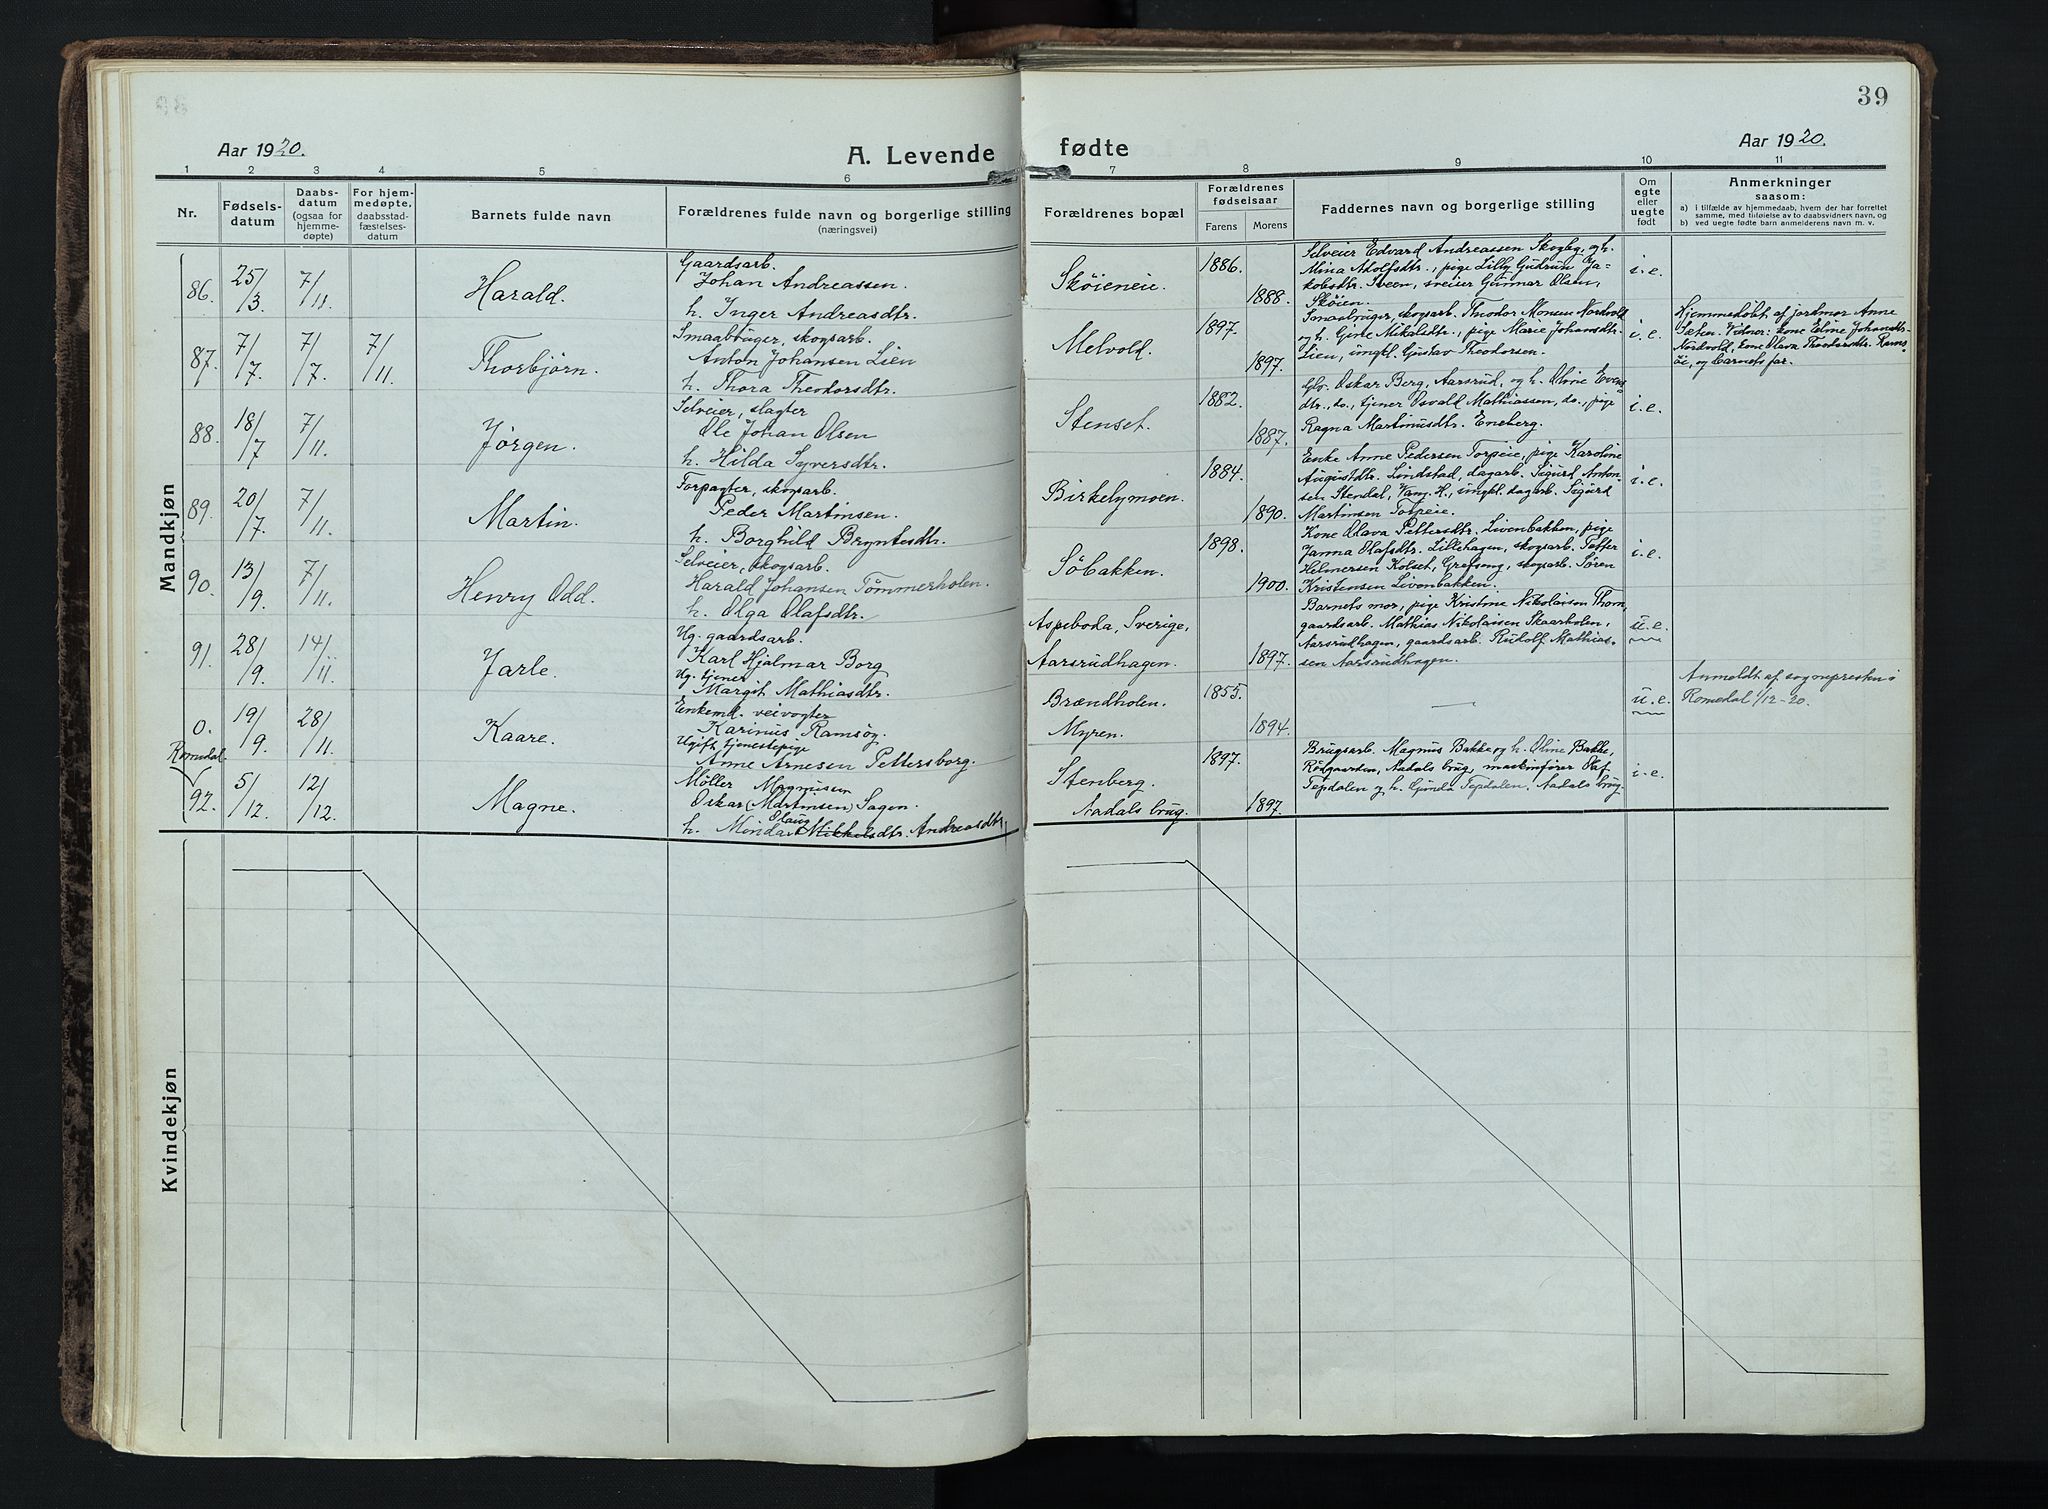 39
Aar 1920.
A. Levende fødte
Aar 1920.
1 2 3 4 5 6 7 8 9 10 11
Nr.
Fødselsdatum
Daabsdatum (ogsaa for hjemmedøpte)
For hjemmedøpte, daabsstadfæstelsesdatum
Barnets fulde navn
Forældrenes fulde navn og borgerlige stilling
(næringsvei)
Forældrenes bopæl
Forældrenes fødselsaar
Farens Morens
Faddernes navn og borgerlige stilling
Om egte eller uegte født
Anmerkninger
saasom:
a) i tilfælde av hjemmedaab, hvem der har forrettet
samme, med tilføielse av to daabsvidners navn, og
b) ved uegte fødte barn anmelderens navn m. v.
Mandkjøn
86. 25/3 7/11. Harald.
Gaardsarb.
Johan Andreassen.
h. Inger Andreasdtr.
Skøieneie.
1886.
1888.
Selveier Edvard Andreassen Skogby, og h.
Mina Adolfsdtr., pige Lilly Gudrun Ja-
kobsdtr. Sveen, sveiser Gunnar Olsen,
Skøien.
i.e.
87. 7/7. 7/7. 7/11. Thorbjørn.
Smaabruger, skogsarb.
Anton Johansen Lien
h. Thora Theodorsdtr.
Melvold.
1897.
1897.
Smaabruger, skogsarb. Thodor Monsen Nordvold
og h. Ginte Mikalsdtr., pige Marie Johansdtr.
Lien, ungkl. Gustav Theodorsen.
i.e.
Hjemmedøbt af jordmor Anne
Sæten. Vidner: Kone Eline Johansdtr.
Nordvold, Kone Olava Theodorsdtr. Rams-
øi, og barnets far.
88. 18/7 7/11. Jørgen.
Selveier, slagter
Ole Johan Olsen
h. Hilda Syversdtr.
Stenset.
1882.
1887.
Gbr. Oskar Berg, Aarsrud, og h. Olvie Evens-
dtr., do., tjener Osvald Mathiassen, do., pige
Ragna Martinusdtr. Eneberg.
i.e.
89. 20/7. 7/11. Martin.
Forpagter, skogsarb.
Peder Martinsen.
h. Borghild Bryntesdtr.
Birkelymoen.
1884.
1890.
Enke Anne Pedersen Torpeie, pige Karoline
Augustdtr. Lindstad, dagarb. Sigurd Anton-
sen Stendal, Vang H., ungkl. dagarb. Sigurd
Martinsen Torpeie.
i.e.
90. 13/9. 7/11. Henry Odd.
Selveier, skogsarb.
Harald Johansen Tømmerholen.
h. Olga Olafsdtr.
Søbakken.
1898.
1900.
Kone Olava Pettersdtr. Livenbakken, pige
Janna Olafsdtr. Lillehagen, skogsarb. Petter
Helmersen Kolset, Grefsong, skogsarb. Søren
Kristensen Livonbakken.
i.e.
91. 28/9. 14/11. Jarle.
Ug. gaardsarb.
Karl Hjalmar Borg
Ug. tjener
Margit Mathiasdtr.
Aspeboda, Sverige,
Aarsrudhagen.
1897.
Barnets mor, pige Kristine Nikolaisen Thom,
gaardsarb. Mathias Nikolaisen Skaarholen,
Aarsrudhagen, gaardsarb. Rudolf Mathias-
sen Aarsrudhagen.
u.e.
0. Romedal. 19/9. 28/11. Kaare.
Enkemd. veivogter
Karinus Ramsøy.
Ugift tjenestepige
Anne Arnesen Pettersborg.
Brændholen.
Myren.
1855.
1894.
—
u.e.
Anmeldt af sognepresten i
Romedal 1/12-20.
92. 5/12. 12/12. Magne.
Møller Magnussen
Oskar (Martinsen) Sagen.
Olaug
h. Minda Mikkelsdtr. Andreasdtr.
Stenberg.
Aadals brug.
1897.
1897.
Brugsarb. Magnus Bakke og h. Oline Bakke,
Rødgaarden, Aadals brug, maskinfører Olaf
Tepdalen og h. Gunda Tepdalen, Aadals brug.
i.e.
Kvindekjøn